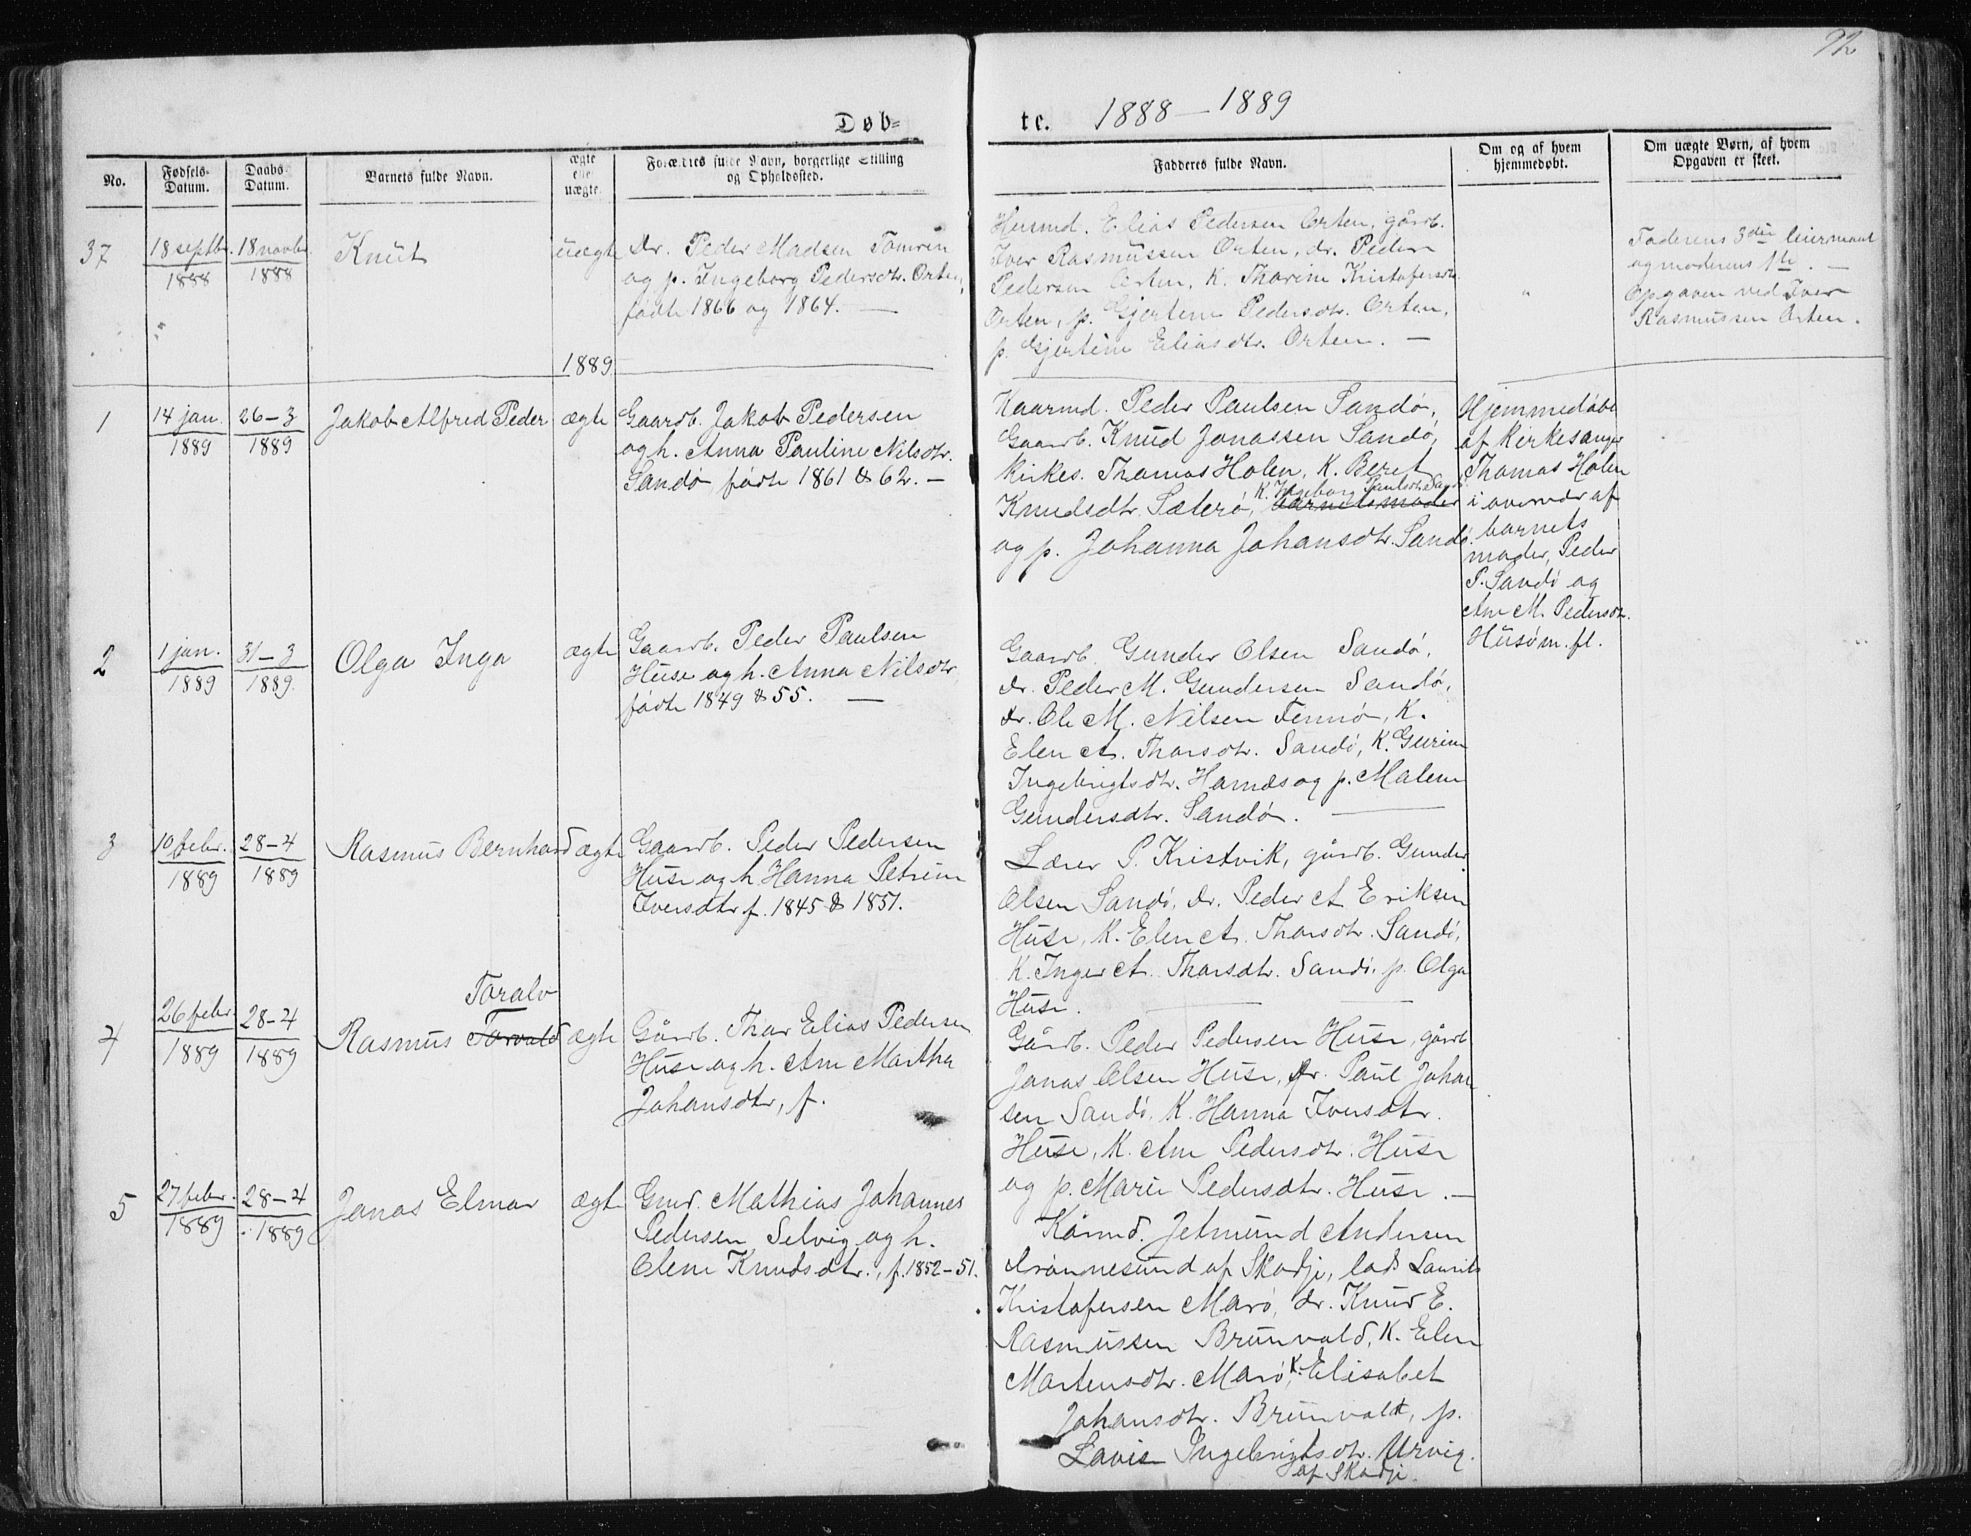 92
Døb=
te. 1888 – 1889
No.
Fødsels-
Datum.
Daabs-
Datum.
Barnets fulde Navn.
ægte
eller
uægte.
Forældres fulde Navn, borgerlige Stilling
og Opholdssted.
Fadderes fulde Navn.
Om og af hvem
hjemmedøbt.
Om uægte Børn, af hvem
Opgaven er skeet.
37
18 septbr.
1888
18 novbr.
1888
Knut
uægte
Dr. Peder Madsen Tomren
og p. Ingeborg Pedersdtr. Orten,
fødte 1866 og 1864. —
Husmd. Elias Pedersen Orten, gårdb.
Iver Rasmussen Orten, dr. Peder
Pedersen Orten, K. Thorine Kristofersdtr.
Orten, p. Gjertine Pedersdtr. Orten,
p. Gjertine Eliasdtr. Orten. —
"
Faderens 3die leiermaal
og moderens 1te. —
Opgaven ved Iver
Rasmussen Orten.
1889
1
14 jan.
1889
26–3
1889
Jakob Alfred Peder
ægte
Gaardb. Jakob Pedersen
og h. Anna Pauline Nilsdtr.
Sandø, fødte 1861 & 62. —
Kaarmd. Peder Paulsen Sandø,
Gaardb. Knud Jonassen Sandø,
kirkes. Thomas Holen, K. Beret
K. Ingeborg Paulsdtr. Sandø
Knudsdtr. Sæterø, barnets moder
og p. Johanna Johansdtr. Sandø.
Hjemmedøbt
af Kirkesanger
Thomas Holen
i overvær af
barnets
moder, Peder
P. Sandø og
Ane M. Pedersdtr.
Husø m. fl.
2
1 jan.
1889
31–3
1889.
Olga Inga
ægte
Gaardb. Peder Paulsen
Huse og h. Anna Nilsdtr.
fødte 1849 & 55. —
Gaardb. Gunder Olsen Sandø,
dr. Peder M. Gundersen Sandø,
dr. Ole M. Nilsen Fennø, K.
Elen A. Thorsdtr. Sandø, K. Gurine
Ingebrigtsdtr. Harnæs og p. Malene
Gundersdtr. Sandø. —
3
10 febr.
1889
28–4
1889
Rasmus Bernhard
ægte
Gaardb. Peder Pedersen
Huse og h. Hanna Petrine
Iversdtr f. 1845 & 1851.
Lærer P. Kristvik, gårdb. Gunder
Olsen Sandø, dr. Peder A Eriksen
Huse, K. Elen A. Thorsdtr. Sandø,
K. Inger A. Thorsdtr. Sandø, p. Olga
Huse.
4
26 febr.
1889
28–4
1889
Toralv
Rasmus Torvald
ægte
Gårdb. Thor Elias Pedersen
Huse og h. Ane Martha
Johansdtr, f.
Gårdb. Peder Pedersen Huse, gårdb
Jonas Olsen Huse, dr. Paul Johan
sen Sandø, K. Hanna Iversdtr.
Huse, K. Ane Pedersdtr. Huse
og p. Marie Pedersdtr. Huse. —
5
27 febr.
1889
28–4
1889
Jonas Elmar
ægte
Gmd. Mathias Johannes
Pedersen Selvig og h.
Olene Knudsdtr., f. 1852–51.
Kårmd. Jetmund Andersen
Drønnesund af Skodje, lods Laurits
Kristofersen Marø, dr. Knud E.
Rasmussen Brunvold, K. Elen
Martensdtr. Marø, K. Elisabet
Johansdtr. Brunvold, p.
Lovise Ingebrigtsdtr. Urvig.
af Skodje.